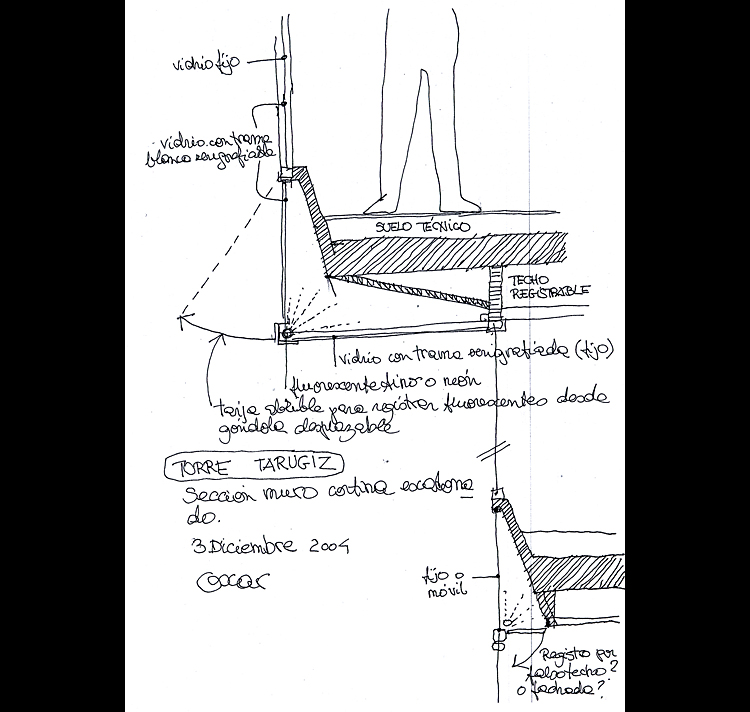 vidrio fijo
vidrio con trama
blanca serigrafiada
SUELO TÉCNICO
TECHO
REGISTRABLE
vidrio con trama serigrafiada (fijo)
fluorescente fino o neón
tarja abrible para registrar fluorescentes desde
góndola desplazable
TORRE TARUGIZ
Sección muro cortina escalona
do.
3 Diciembre 2004
Oscar
fijo o
móvil
Registro por
falsotecho?
o fachada?